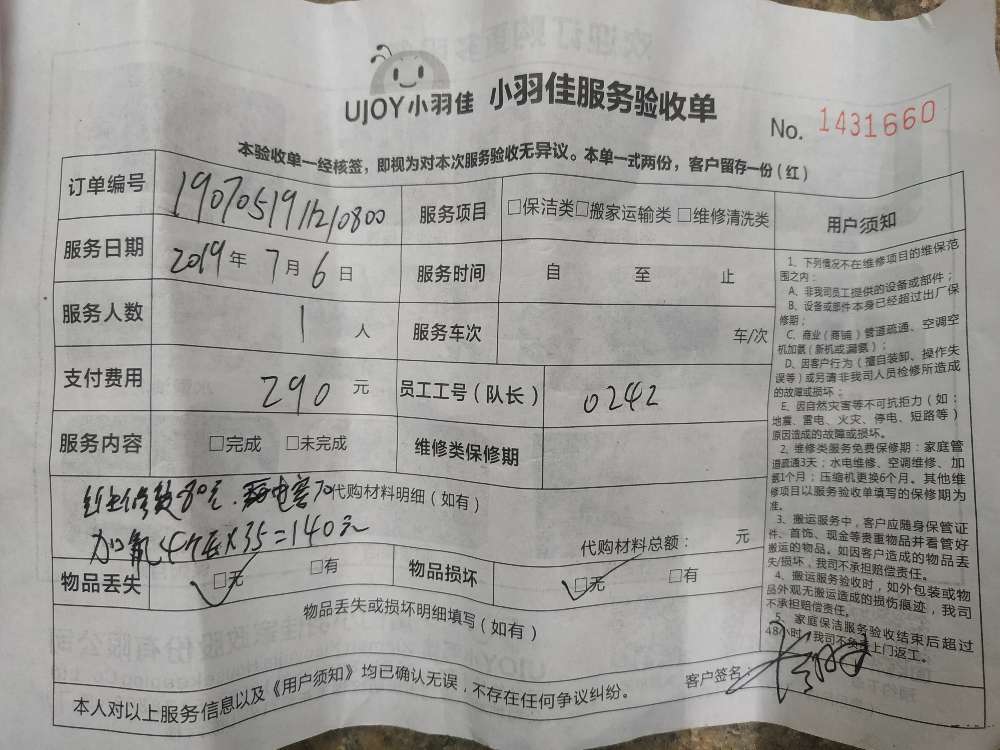 UJOY小羽佳 小羽佳服务验收单
No. 1431660
本验收单一经核签，即视为对本次服务验收无异议。本单一式两份，客户留存一份（红）
订单编号 1907051911210800 服务项目 □保洁类□搬家运输类 □维修清洗类
服务日期 2019年 7月 6日 服务时间 自 至 止
服务人数 1 人 服务车次 车/次
支付费用 290 元 员工工号（队长） 0242
服务内容 □完成 □未完成 维修类保修期
代购材料明细（如有）
加氟4个压×35=140元
代购材料总额： 元
物品丢失 □无 □有 物品损坏 □无 □有
物品丢失或损坏明细填写（如有）
客户签名：
本人对以上服务信息以及《用户须知》均已确认无误，不存在任何争议纠纷。
用户须知
1、下列情况不在维修项目的维保范
围之内：
A、非我司员工提供的设备或部件；
B、设备或部件本身已经超过出厂保
修期；
C、商业（商铺）管道疏通、空调空
机加氨（新机或漏氨）；
D、因客户行为（擅自装卸、操作失
误等）或另请非我司人员检修所造成
的故障或损坏；
E、因自然灾害等不可抗拒力（如：
地震、雷电、火灾、停电、短路等）
原因造成的故障或损坏。
2、维修类服务免费保修期：家庭管
道疏通3天；水电维修、空调维修、加
氨1个月；压缩机更换6个月。其他维
修项目以服务验收单填写的保修期为
准。
3、搬运服务中，客户应随身保管证
件、首饰、现金等贵重物品并看管好
搬运的物品。如因客户造成的物品丢
失/损坏，我司不承担赔偿责任。
4、搬运服务验收时，如外包装或物
品外观无搬运造成的损伤痕迹，我司
不承担赔偿责任。
5、家庭保洁服务验收结束后超过
48小时，我司不负责上门返工。